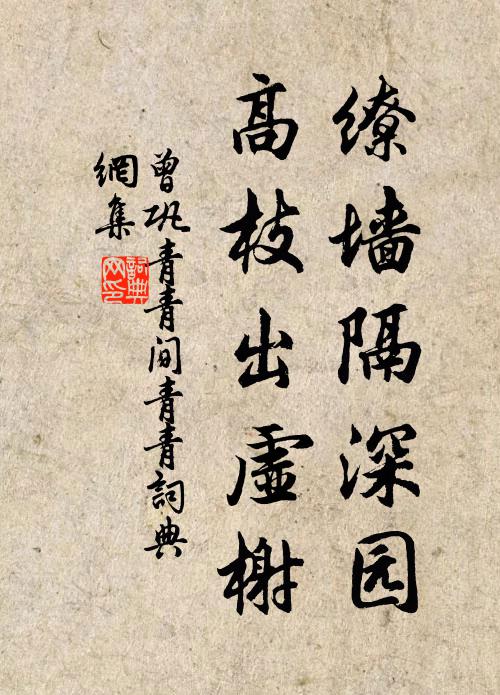 缭墙隔深园
高枝出虚榭
曾巩青青间青青詞典
網集
詞典
网印